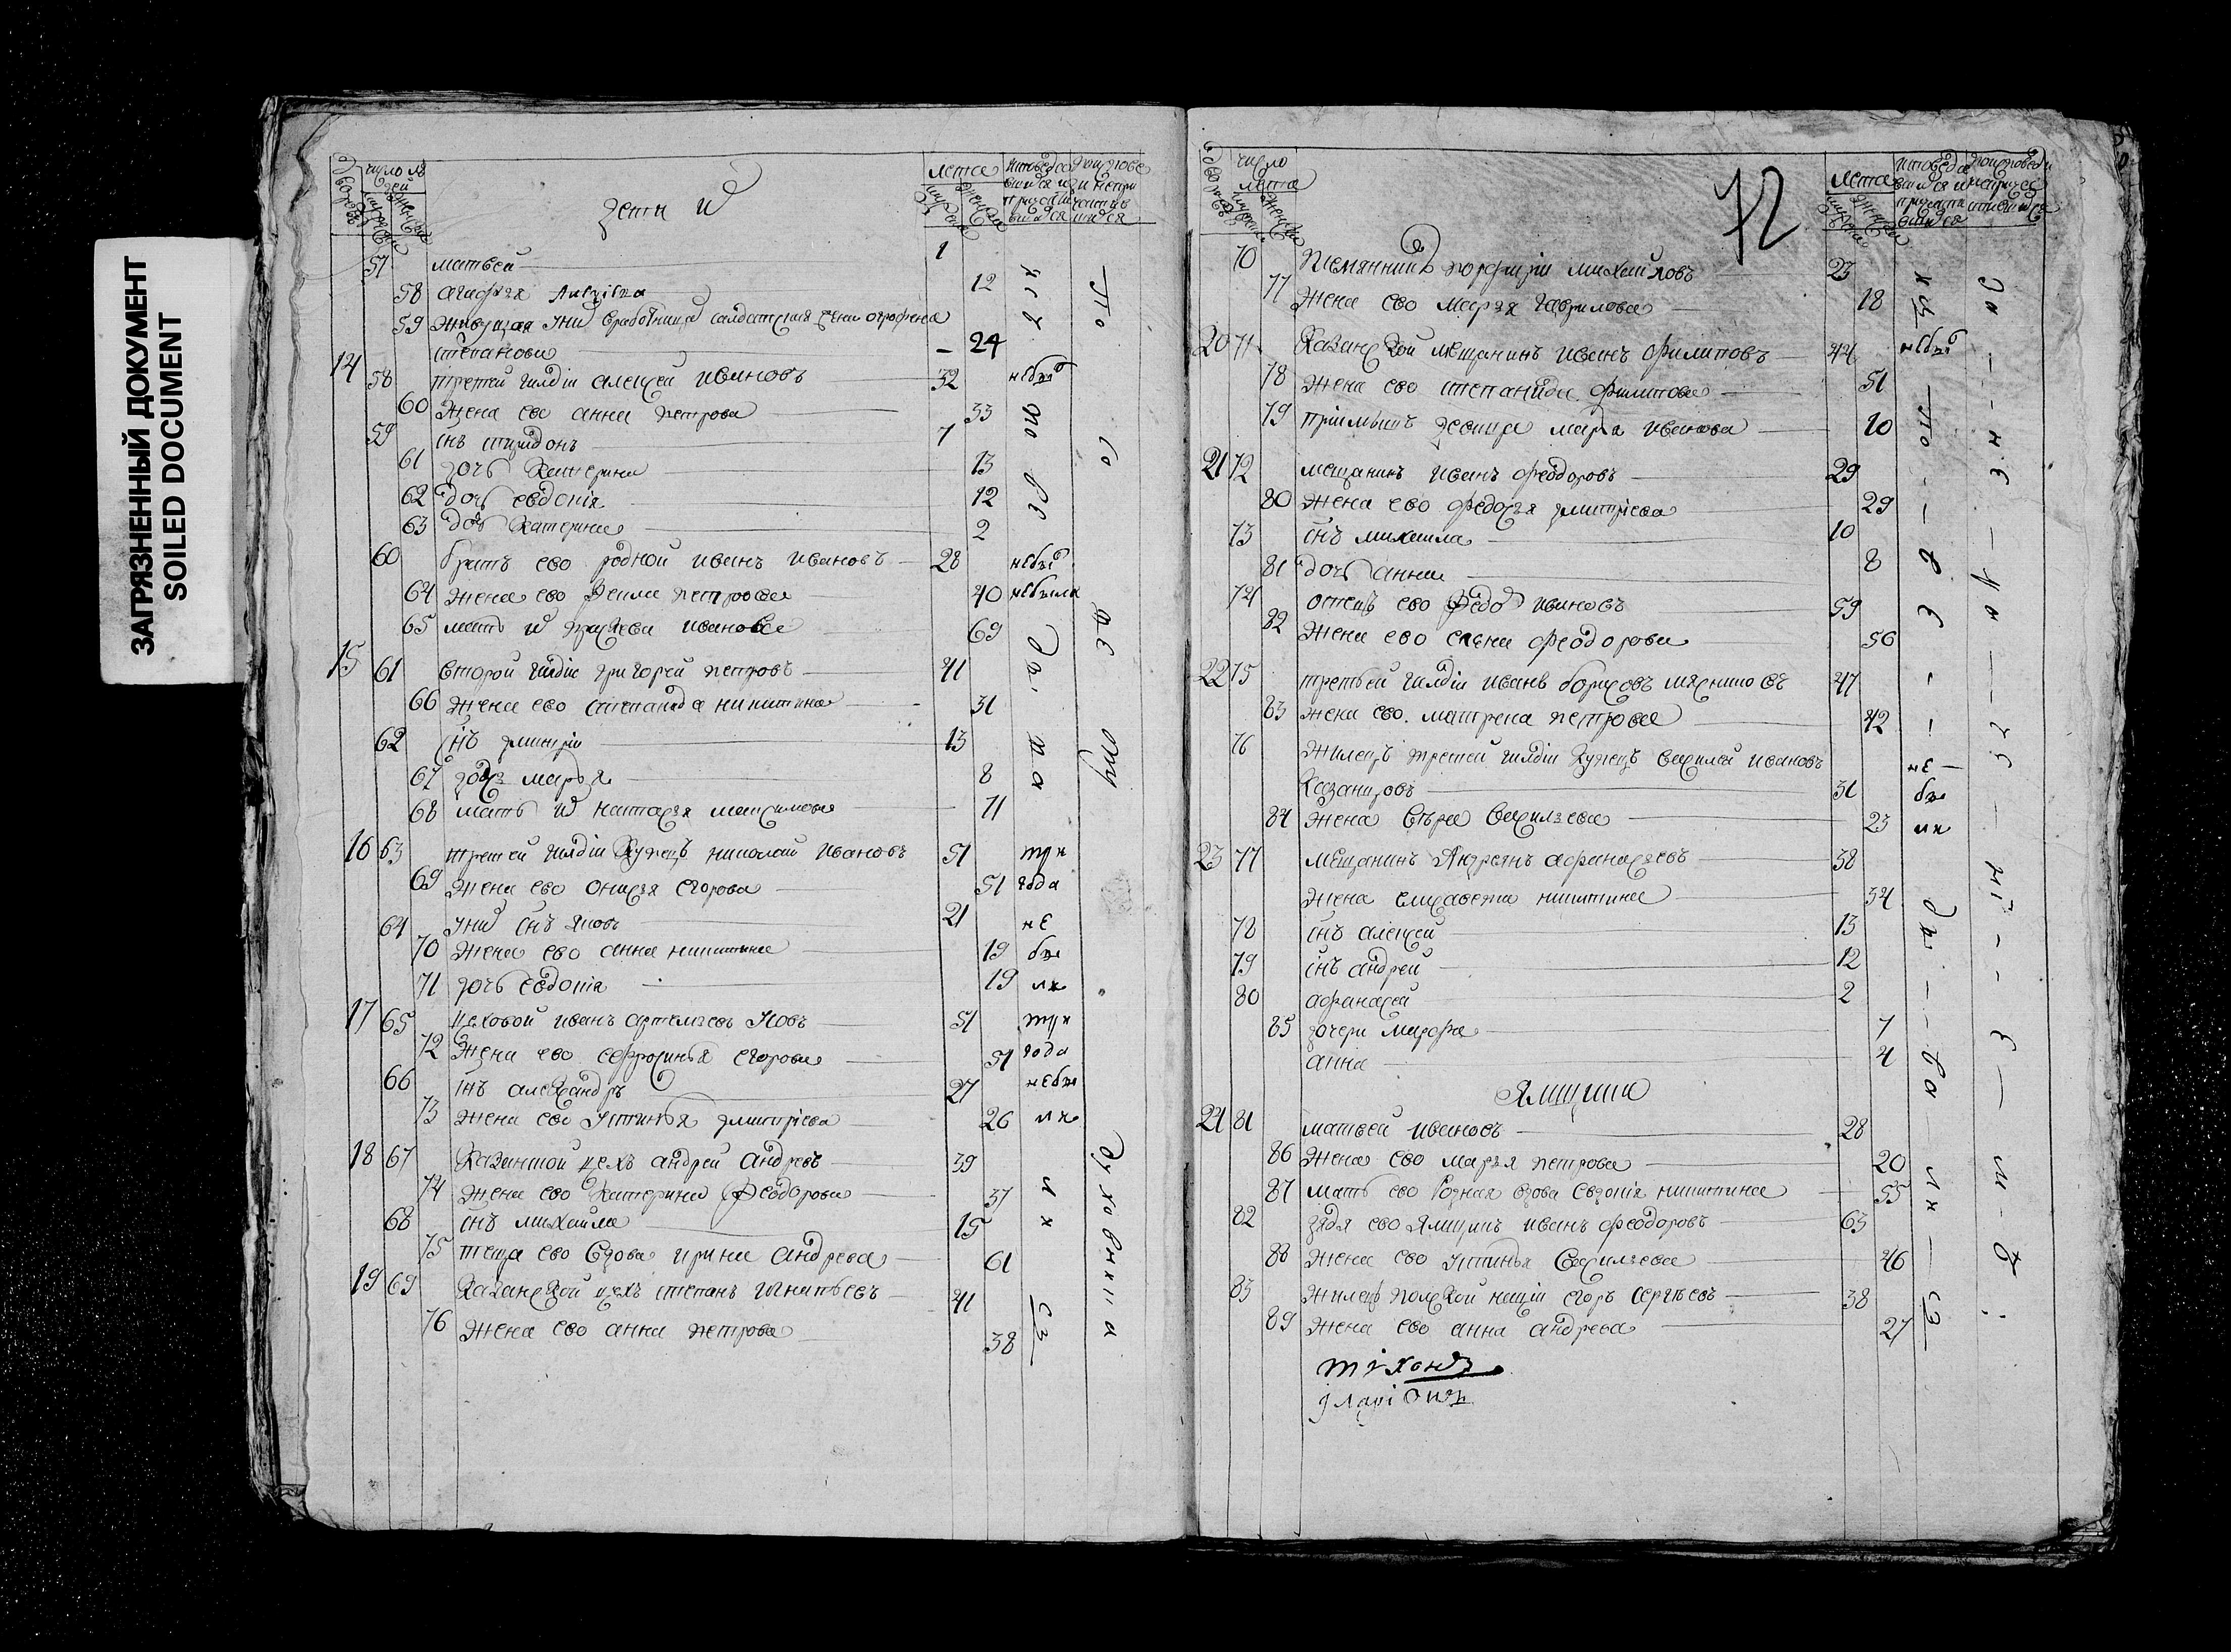 ЗАГРЯЗНЕННЫЙ ДОКУМЕНТ
SOILED DOCUMENT
число лю
дей
лета
дети их
57 матвей 1
58 агафья 12
59 живущая у них в работницах салдатская жена
степанова 24
14 58 третей гилдіи алексей ивановъ 32 небылъ
60 жена ево анна петрова 33
59 снъ спиридонъ 7
61 дочь катерина 13
62 дочь евдокія 12
63 дочь катерина 2
60 братъ ево родной иванъ ивановъ 28 небылъ
64 жена ево петрова 40 небыла
65 мать их иванова 69
15 61 второй гилдіи григорей петровъ 41
66 жена ево степанида никитина 31
62 снъ дмитрій 13
67 дочь марья 8
68 мать их настасья максимова 71
16 63 третей гилдіи купецъ николай ивановъ 51 три
69 жена ево егорова 51 года
64 у них снъ яковъ 21 не
70 жена ево анна никитина 19 бы
71 дочь евдокіа 19 ли
17 65 цеховой иванъ артемьевъ 51 три
72 жена ево ефросинья егорова 51 года
66 снъ александръ 27 небы
73 жена ево устинья дмитріева 26 ли
18 67 казанской цехъ андрей андреевъ 39
74 жена ево катерина феодорова 37
68 снъ михайла 15
75 теща ево вдова ирина андреева 61
19 69 казанской цехъ степанъ игнатьевъ 41
76 жена ево анна петрова 38
духовника
72
число
лета
70 племянникъ михайловъ 23
77 жена ево марья гаврилова 18
20 71 казанской мещанинъ иванъ филиповъ 44 небылъ
78 жена ево степанида филипова 51
79 пріимышъ девица марья иванова 10
21 72 мещанинъ иванъ феодоровъ 29
80 жена ево федосья дмитріева 29
73 снъ михаила 10
81 дочь анна 8
74 отецъ ево федоръ ивановъ 59
82 жена ево елена феодорова 56
22 75 третьей гилдіи иванъ борисовъ мясниковъ 47
83 жена ево матрена петрова 42
76 жилецъ третей гилдіи купецъ василей ивановъ не
казанцовъ 31 бы
84 жена вера васильева 23 ли
23 77 мещанинъ андреянъ афанасьевъ 38
жена елисавета никитина 34
78 снъ алексей 13
79 снъ андрей 12
80 афанасей 2
85 дочери марфа 7
анна 4
Ямщики
24 81 матвей ивановъ 28
86 жена ево марья петрова 20
87 мать ево родная вдова евдокія никитина 55
82 дядя ево ямщикъ иванъ феодоровъ 63
88 жена ево устинья васильева 46
83 жилецъ полской націй егоръ сергеевъ 38
89 жена ево анна андреева 27
тіхонъ
іларіонъ